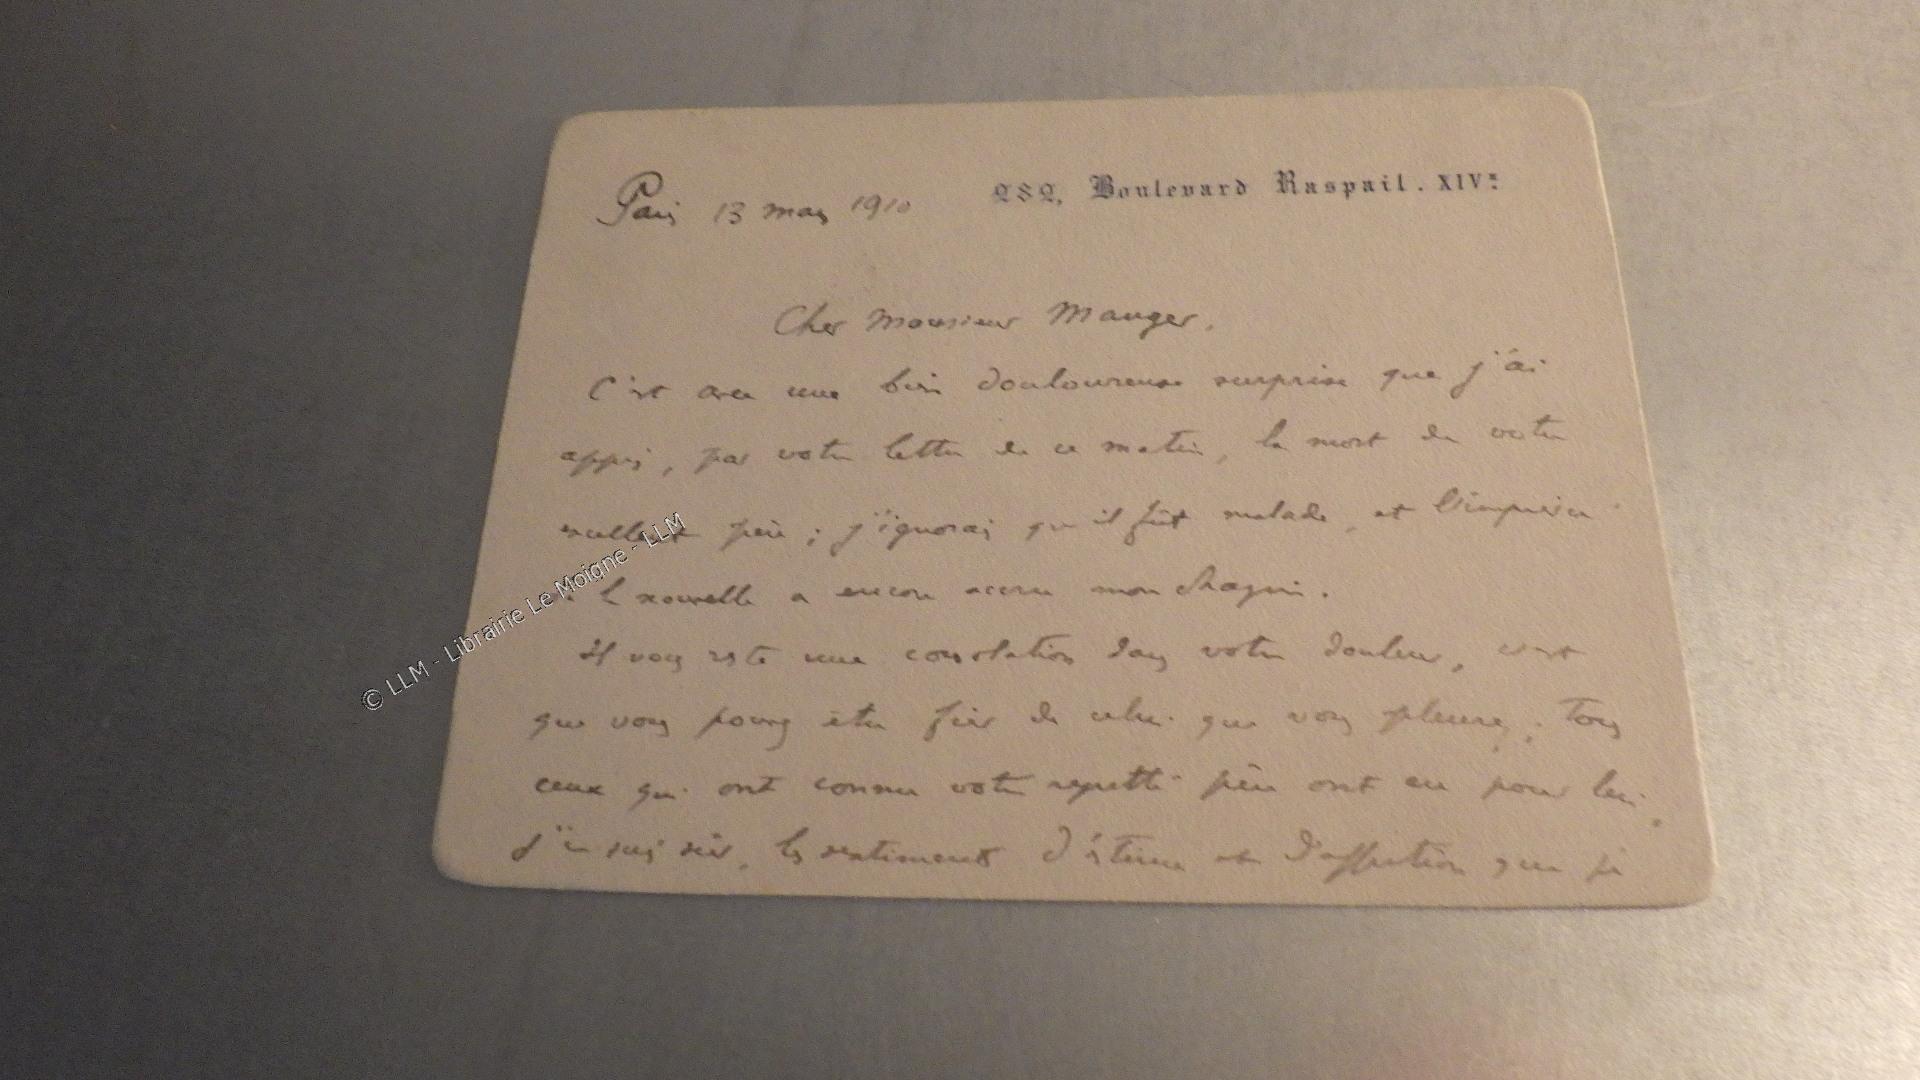 Paris 13 mars 1910 282, Boulevard Raspail. XIVe
Cher Monsieur Mauger,
C'est avec une bien douloureuse surprise que j'ai
appris, par votre lettre de ce matin, la mort de votre
excellent père ; j'ignorais qu'il fût malade, et l'imprévu
la nouvelle a encore accru mon chagrin.
Il vous reste une consolation dans votre douleur, c'est
que vous pouvez être fier de celui que vous pleurez. Tous
ceux qui ont connu votre regretté père ont eu pour lui,
j'en suis sûr, les sentiments d'estime et d'affection que je
© LLM - Librairie Le Moigne - LLM